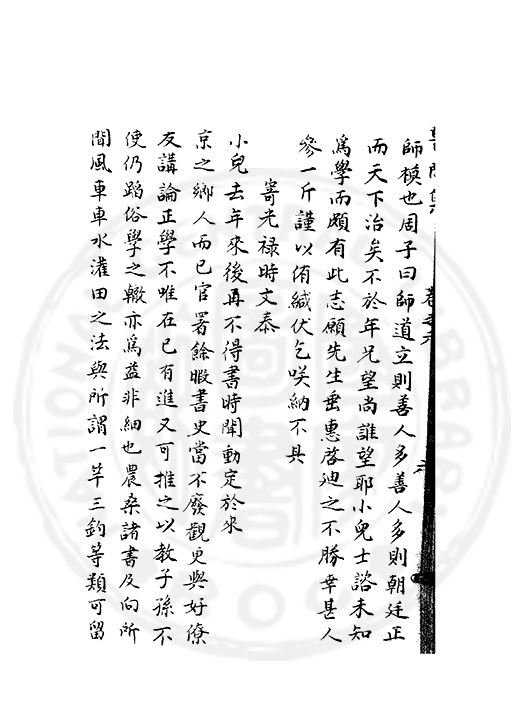 師模也周子曰師道立則善人多善人多則朝廷正
而天下治矣不於年兄望尚誰望耶小兒士諮未知
爲學而頗有此志願先生垂惠啓廸之不勝幸甚人
參一斤謹以侑緘伏乞咲納不具
寄光禄時文泰
小兒去年來後再不得書時聞動定於來
京之鄉人而已官署餘暇書史當不廢觀更與好僚
友講論正學不唯在已有進又可推之以教子孫不
使仍蹈俗學之轍亦爲益非細也農桑諸書及向所
聞風車車水灌田之法與所謂一竿三鈎等類可留